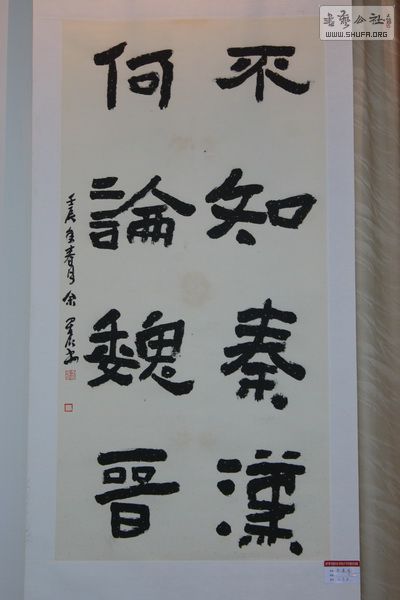 不知秦漢
何論魏晉
壬辰年春月余
书艺公社
WWW.SHUFA.ORG